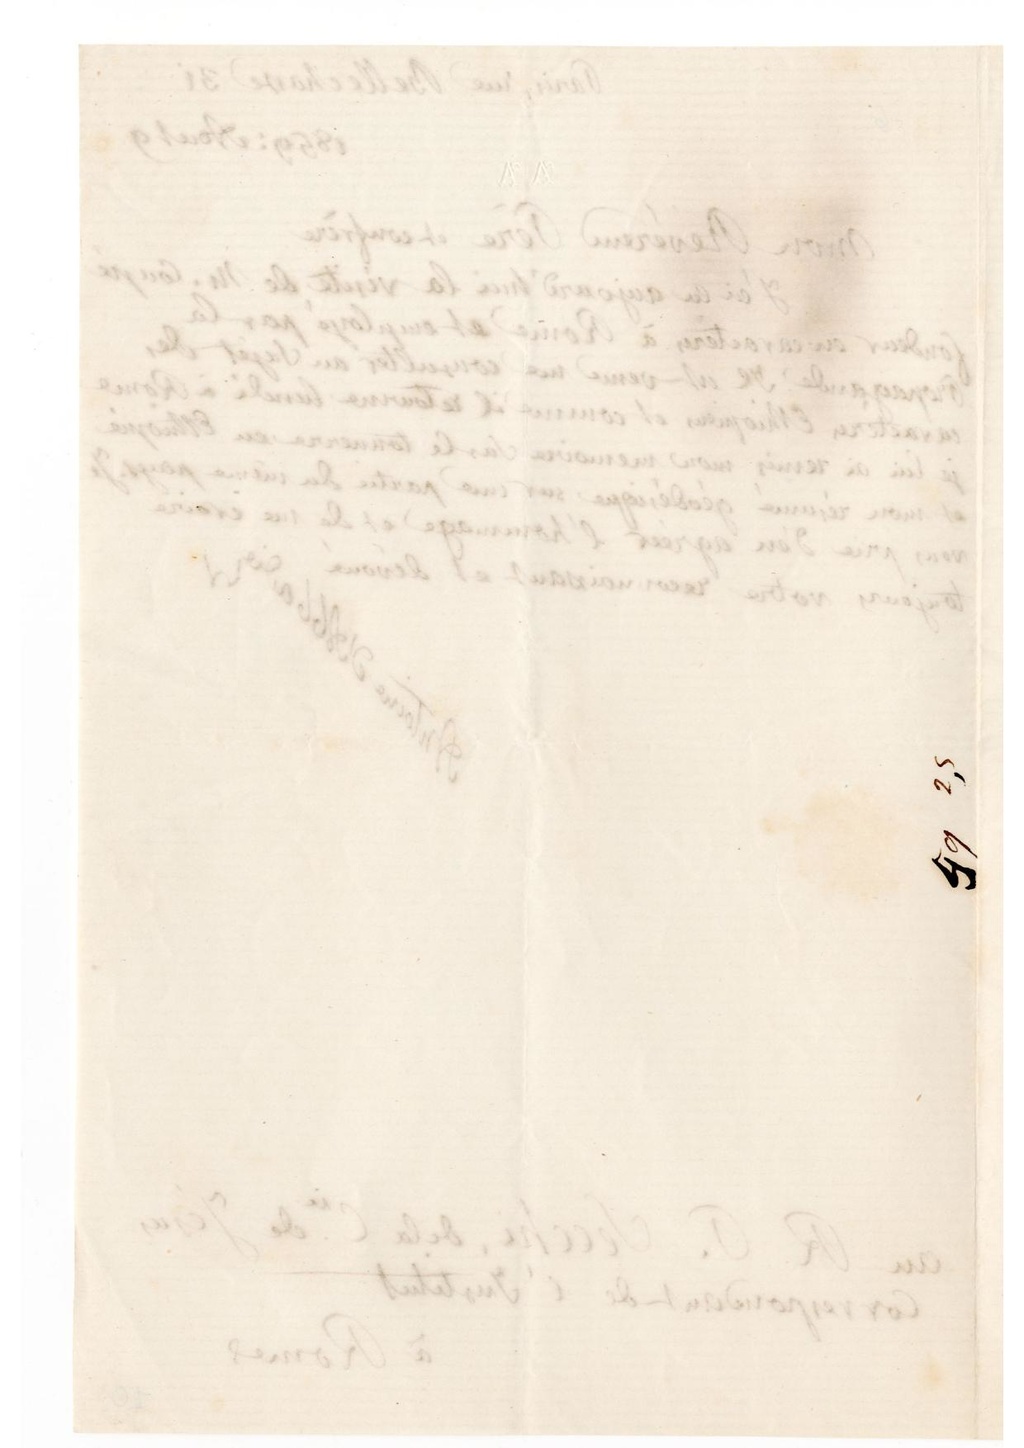 Paris, rue Bellechasse 31
1859: Aout 9
Mon Révérend Père et confrère
J'ai eu aujourd'hui la visite de M.
fondeur en caractères à Rome et employé par la
Propagande. Il est venu me consulter au sujet des
caractères Ethiopiens et comme il retourne lundi à Rome
je lui ai remis mon mémoire sur le tonnerre en Ethiopie
et mon résumé géodésique sur une partie du même pays. Je
vous prie d'en agréer l'hommage et de me croire
toujours votre reconnaissant et dévoué
Antoine d'Abbadie
59 25
au R. P. Secchi, de la Cie de Jésus
Correspondant de l'Institut
à Rome